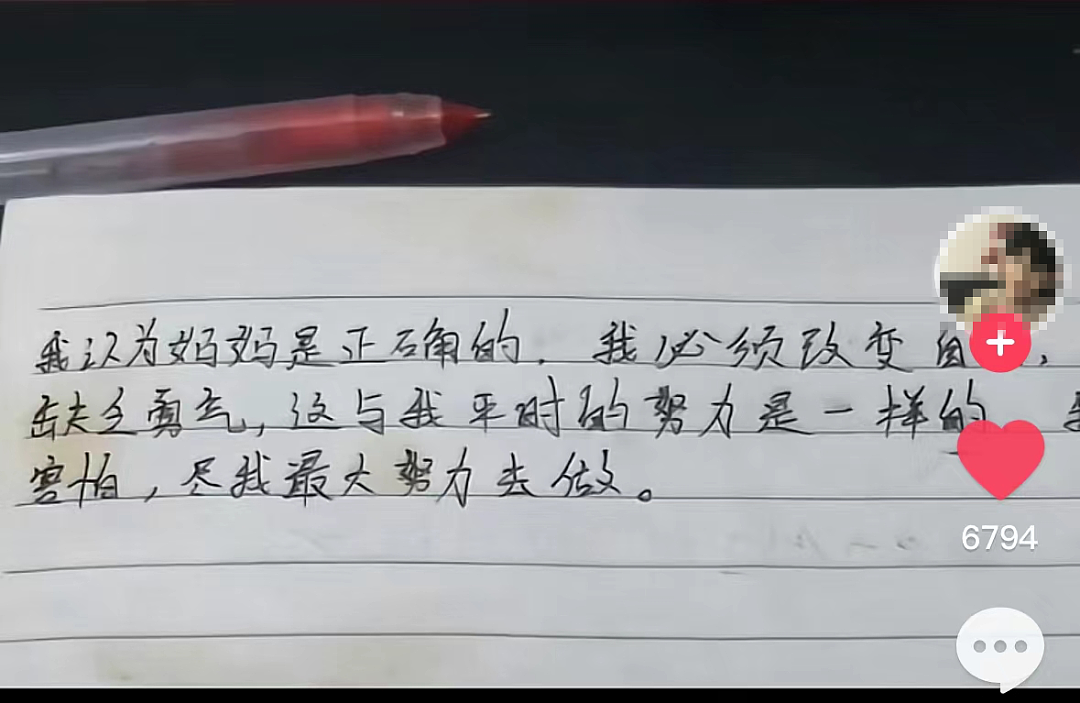 我认为妈妈是正确的，我必须改变自
缺乏勇气，这与我平时的努力是一样的
害怕，尽我最大努力去做。
6794